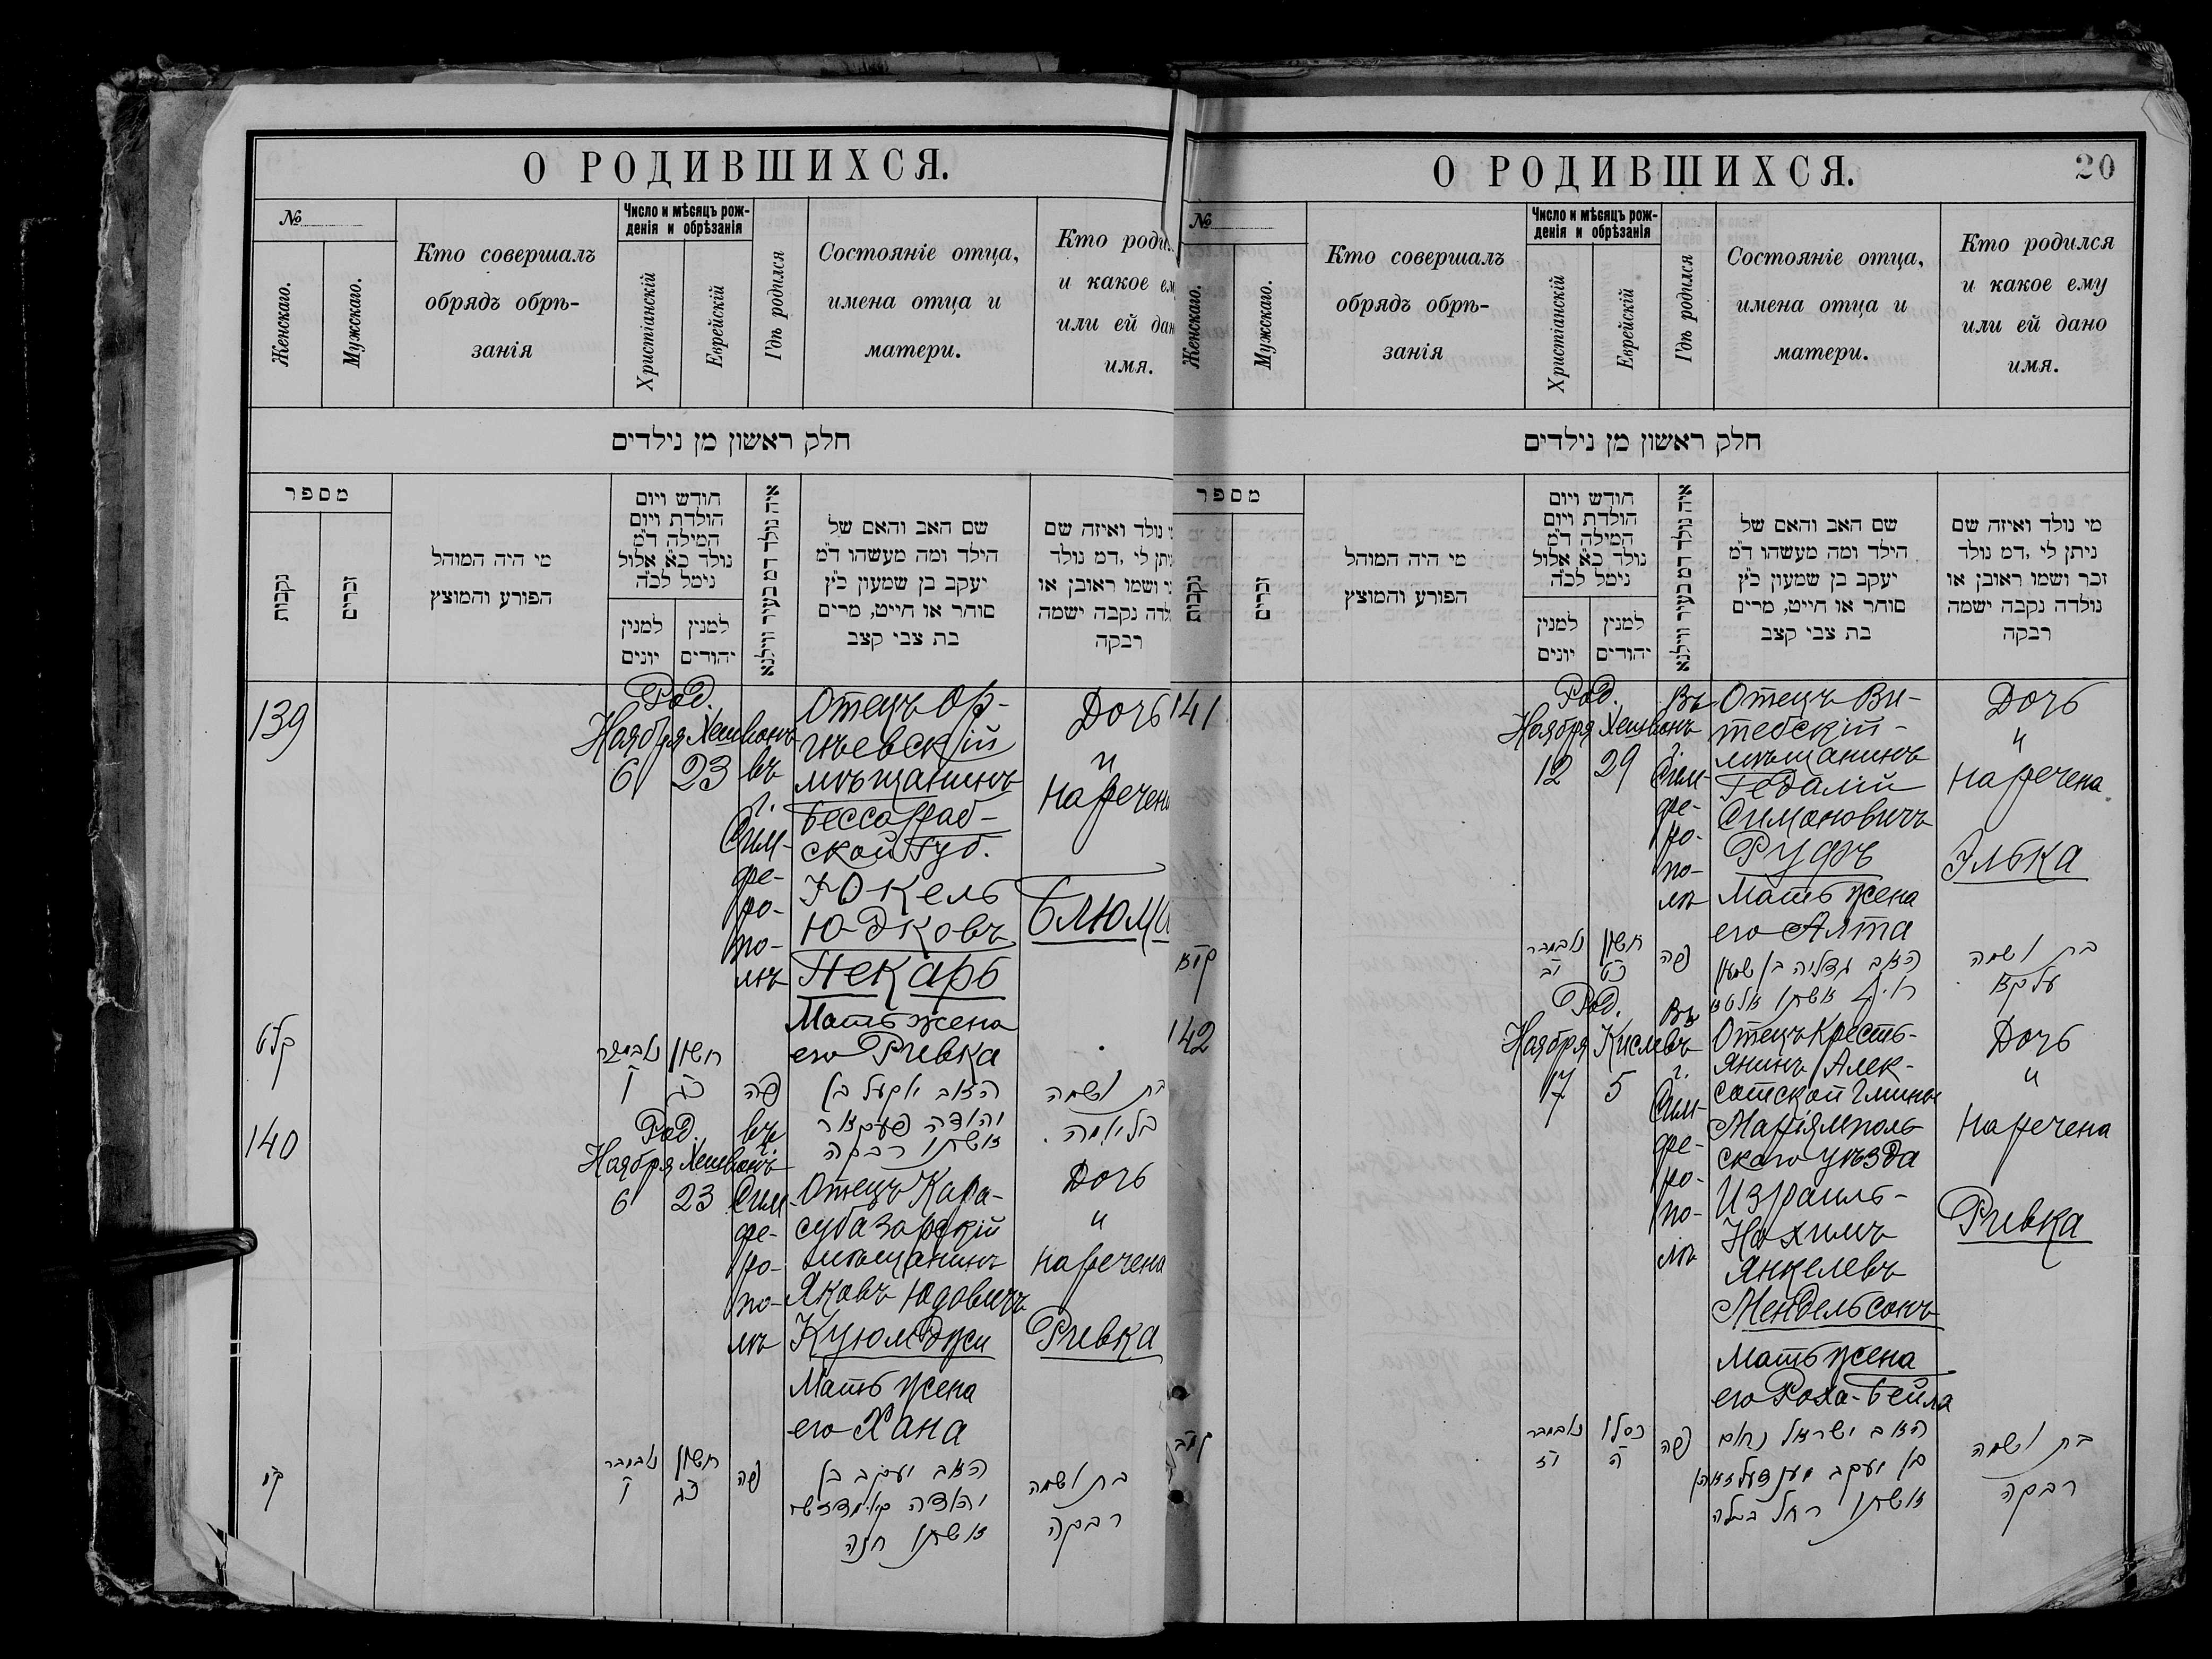 О РОДИВШИХСЯ.
№
Женскаго.
Мужскаго.
Кто совершалъ
обрядъ обрѣ-
занія
Число и мѣсяцъ рож-
денія и обрѣзанія
Христіанскій
Еврейскій
Гдѣ родился
Состояніе отца,
имена отца и
матери.
Кто роди
и какое ем
или ей дан
имя.
חלק ראשון מן נילדים
מספר
נקבות
זכרים
מי היה המוהל
הפורע והמוצץ
חודש ויום
הולדת ויום
המילה ד״מ
נולד כ״א אלול
נימל לכ״ה
למנין
יונים
למנין
יהודים
איה נולד דמ בעיר ווילנא
שם האב והאם של
הילד ומה מעשהו ד״מ
יעקב בן שמעון כ״ץ
סוחר או חייט, מרים
בת צבי קצב
נולד ואיזה שם
יתן לי, דמ נולד
ושמו ראובן או
לדה נקבה ישמה
רבקה
139
Род.
Ноября Хешвонъ
6 23
въ
г.
Сим-
фе-
ро-
по-
лѣ
Отецъ Ор-
гѣевскій
мѣщанинъ
Бессараб-
ской губ.
Юкель
Юдковъ
Пекарь
Мать жена
его Ривка
Дочь
и
наречен
Блюм
קלט
נאבמבר חשון
ו כג
פה
האב יאקעל בן
יהודה פעקאר
אשתו רבקה
בת ושמה
בליומה
140
Род.
Ноября Хешвонъ
6 23
въ
г.
Сим-
фе-
ро-
по-
лѣ
Отецъ Кара-
субазарскій
мѣщанинъ
Яковъ Юдовичъ
Куюмджи
Мать жена
его Хана
Дочь
и
наречена
Ривка
קמ
נאבמבר חשון
ו כג
פה
האב יעקב בן
יהודה
אשתו חנה
בת ושמה
רבקה
О РОДИВШИХСЯ.
20
№
Женскаго.
Мужскаго.
Кто совершалъ
обрядъ обрѣ-
занія
Число и мѣсяцъ рож-
денія и обрѣзанія
Христіанскій
Еврейскій
Гдѣ родился
Состояніе отца,
имена отца и
матери.
Кто родился
и какое ему
или ей дано
имя.
חלק ראשון מן נילדים
מספר
נקבות
זכרים
מי היה המוהל
הפורע והמוצץ
חודש ויום
הולדת ויום
המילה ד״מ
נולד כ״א אלול
נימל לכ״ה
למנין
יונים
למנין
יהודים
איה נולד דמ בעיר ווילנא
שם האב והאם של
הילד ומה מעשהו ד״מ
יעקב בן שמעון כ״ץ
סוחר או חייט, מרים
בת צבי קצב
מי נולד ואיזה שם
ניתן לי, דמ נולד
זכר ושמו ראובן או
נולדה נקבה ישמה
רבקה
141
Род.
Ноября Хешвонъ
12 29
Въ
г.
Сим-
фе-
ро-
по-
лѣ
Отецъ Ви-
тебскій
мѣщанинъ
Гедалій
Симоновичъ
Руфъ
Мать жена
его Алта
Дочь
и
наречена
Элька
קמא
נאבמבר חשון
יב כט
פה
האב גדליה בן שמעון
רוף אשתו אלטא
בת ושמה
עלקא
142
Род.
Ноября Кислевъ
17 5
Въ
г.
Сим-
фе-
ро-
по-
лѣ
Отецъ Кресть-
янинъ Алек-
сотской гмины
Маріямполь
скаго уѣзда
Израиль-
Нахимъ
Янкелевъ
Мендельсонъ
Мать жена
его Роха-Бейла
Дочь
и
наречена
Ривка
קמב
נאבמבר כסלו
יז ה
פה
האב ישראל נחום
בן יעקב מענדעלזאהן
אשתו רחל ביילה
בת ושמה
רבקה